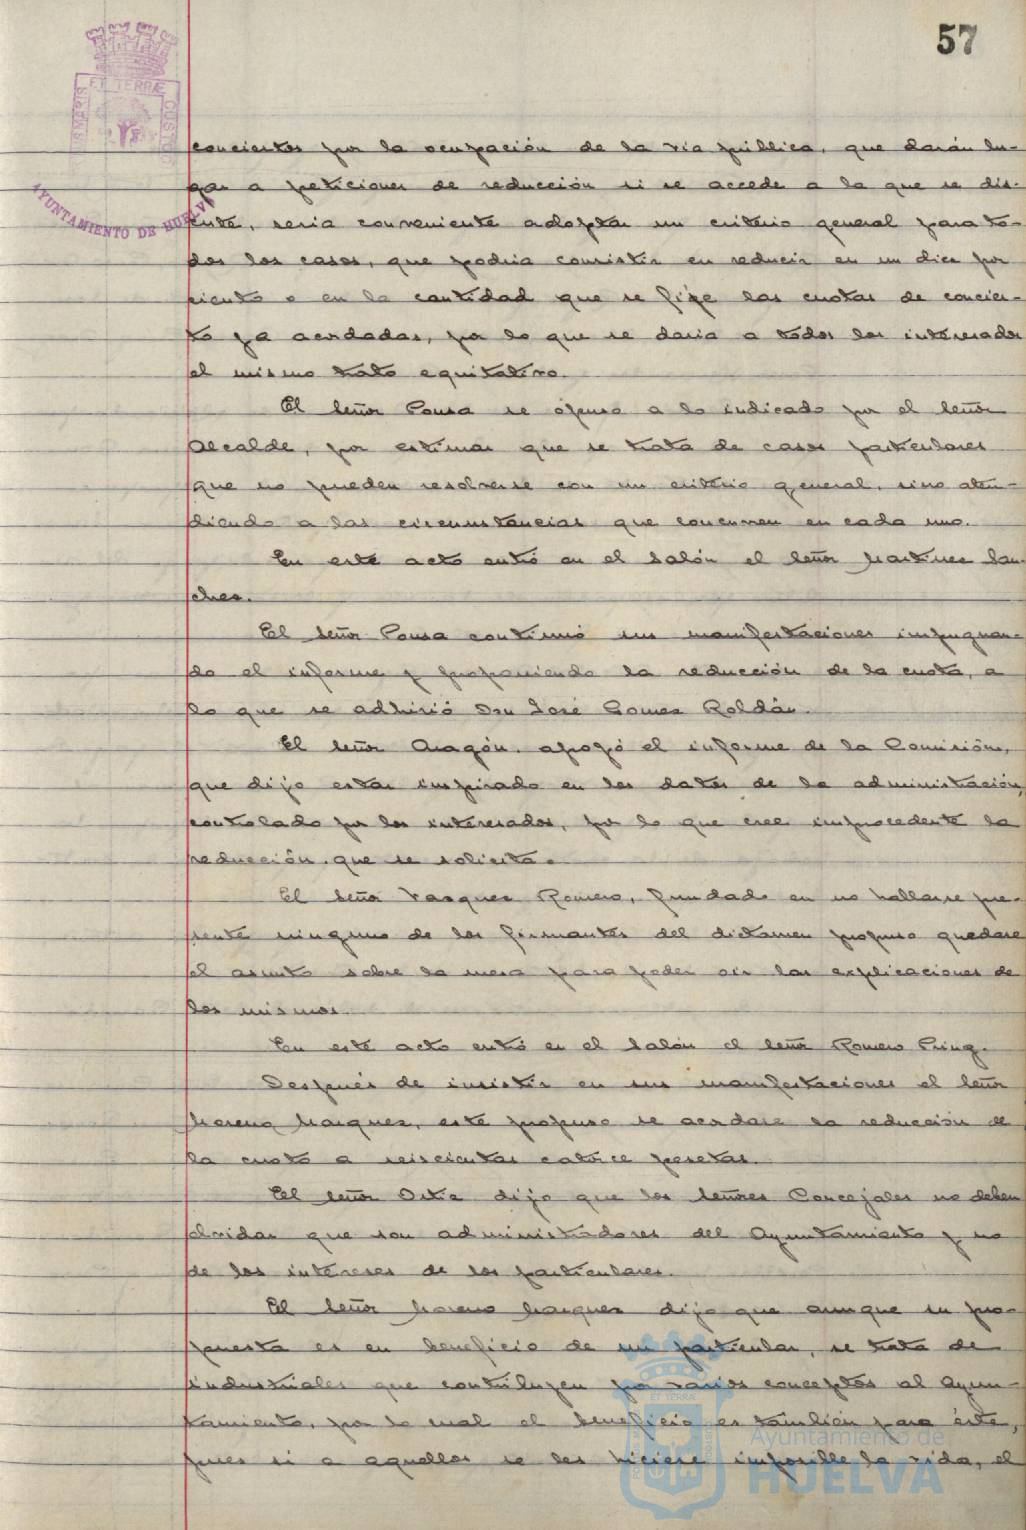 57
ET TERRÆ
CUSTOS
AYUNTAMIENTO DE HUELVA
conciertos por la ocupación de la via pública, que darán lu-
gar a peticiones de reducción si se accede a la que se dis-
cute, seria conveniente adoptar un criterio general para to-
dos los casos, que podria consistir en reducir en un diez por
ciento o en la cantidad que se fije las cuotas de concier-
to ya acordadas, por lo que se daria a todos los interesados
el mismo trato equitativo.
El Señor Pousa se opuso a lo indicado por el Señor
Alcalde, por estimar que se trata de casos particulares
que no pueden resolverse con un criterio general, sino aten-
diendo a las circunstancias que concurren en cada uno.
En este acto entró en el Salón el Señor Martinez San-
chez.
El Señor Pousa continuó sus manifestaciones impugnan-
do el informe y proponiendo la reducción de la cuota, a
lo que se adhirió Don José Gomez Roldán.
El Señor Aragón, apoyó el informe de la Comisión,
que dijo estar inspirado en los datos de la administración,
controlado por los interesados, por lo que cree improcedente la
reducción que se solicita.
El Señor Vazquez Romero, fundado en no hallarse pre-
sente ninguno de los firmantes del dictamen propuso quedase
el asunto sobre la mesa para poder oir las explicaciones de
los mismos.
En este acto entró en el Salón el Señor Romero
Después de insistir en sus manifestaciones el Señor
Moreno Marquez, este propuso se acordase la reducción de
la cuota a seiscientas catorce pesetas.
El Señor Ortiz dijo que los Señores Concejales no deben
olvidar que son administradores del Ayuntamiento y no
de los intereses de los particulares.
El Señor Moreno Marquez dijo que aunque su pro-
puesta es en beneficio de un particular, se trata de
industriales que contribuyen por varios conceptos al Ayun-
tamiento, por lo cual el beneficio es también para éste,
pues si a aquellos se les hiciese imposible la vida, el
Ayuntamiento de
HUELVA